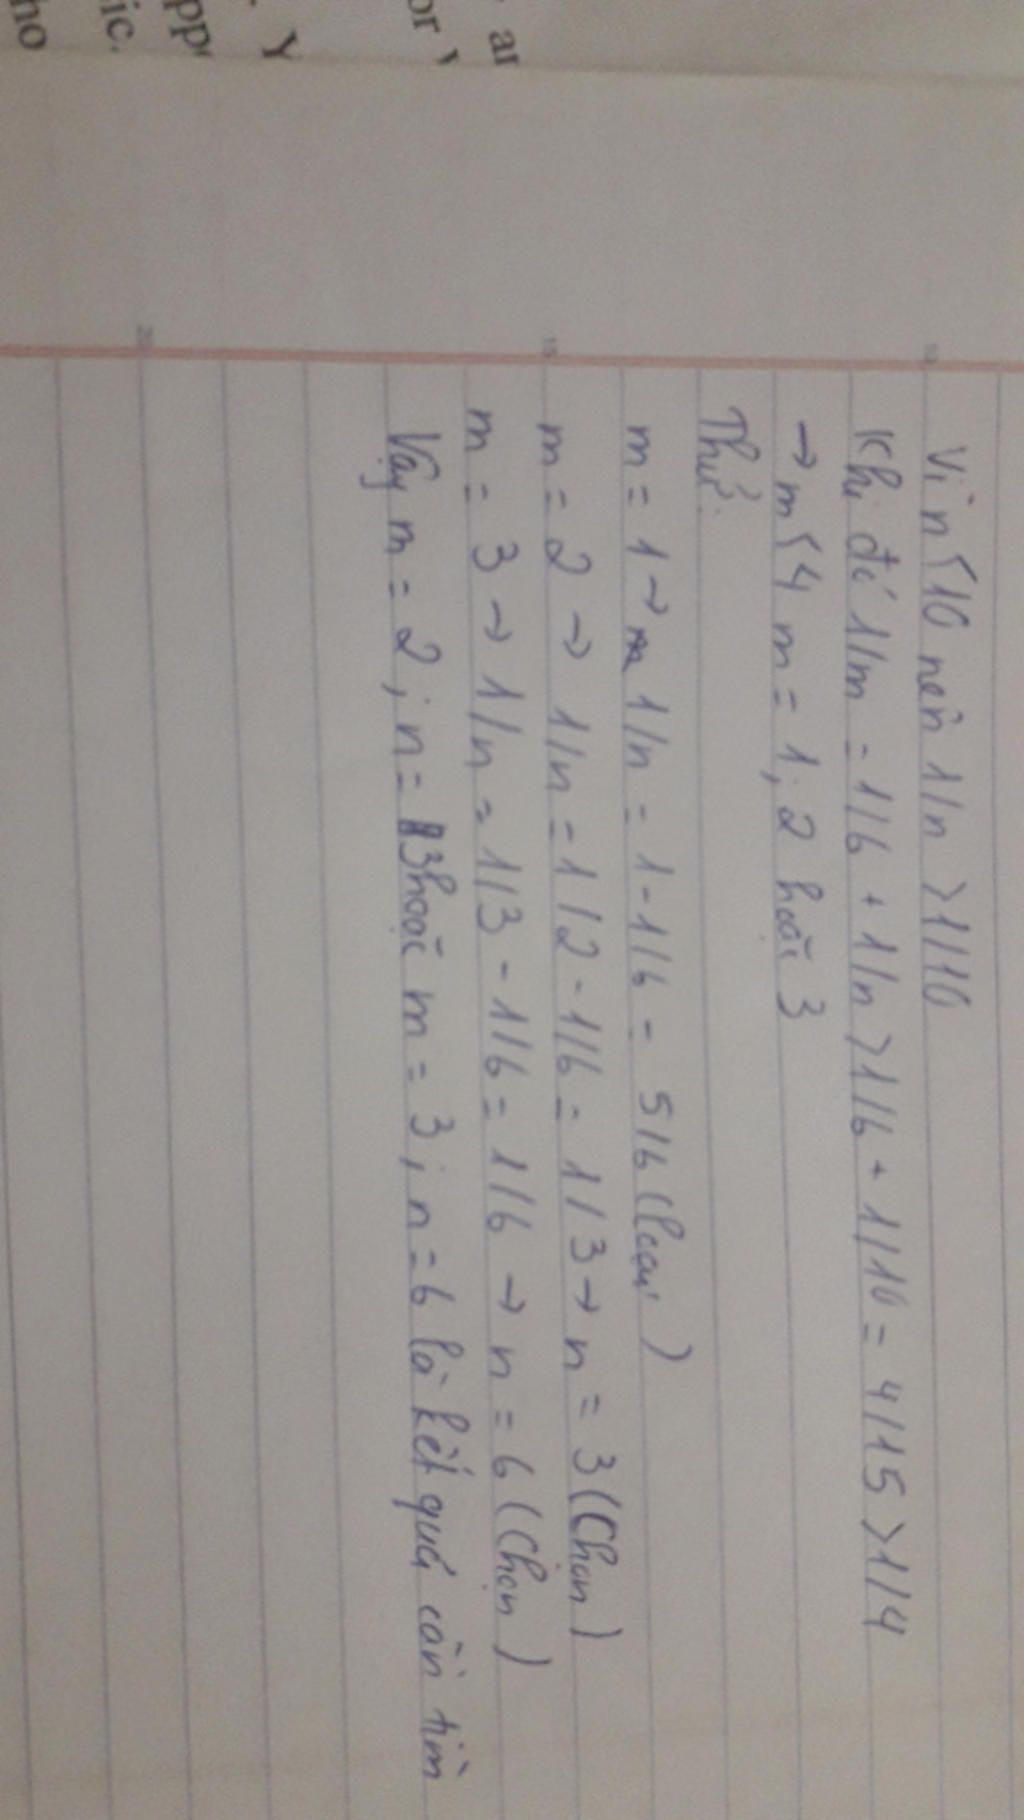 Vì n < 10 nên 1/n > 1/10
Khi đó 1/m = 1/6 + 1/n > 1/6 + 1/10 = 4/15 > 1/4
→ m < 4 m = 1; 2 hoặc 3
Thử:
m = 1 → 1/n = 1 - 1/6 = 5/6 (loại)
m = 2 → 1/n = 1/2 - 1/6 = 1/3 → n = 3 (Chọn)
m = 3 → 1/n = 1/3 - 1/6 = 1/6 → n = 6 (Chọn)
Vậy m = 2; n = 3 hoặc m = 3; n = 6 là kết quả cần tìm
10
15
20
or
Y
ho